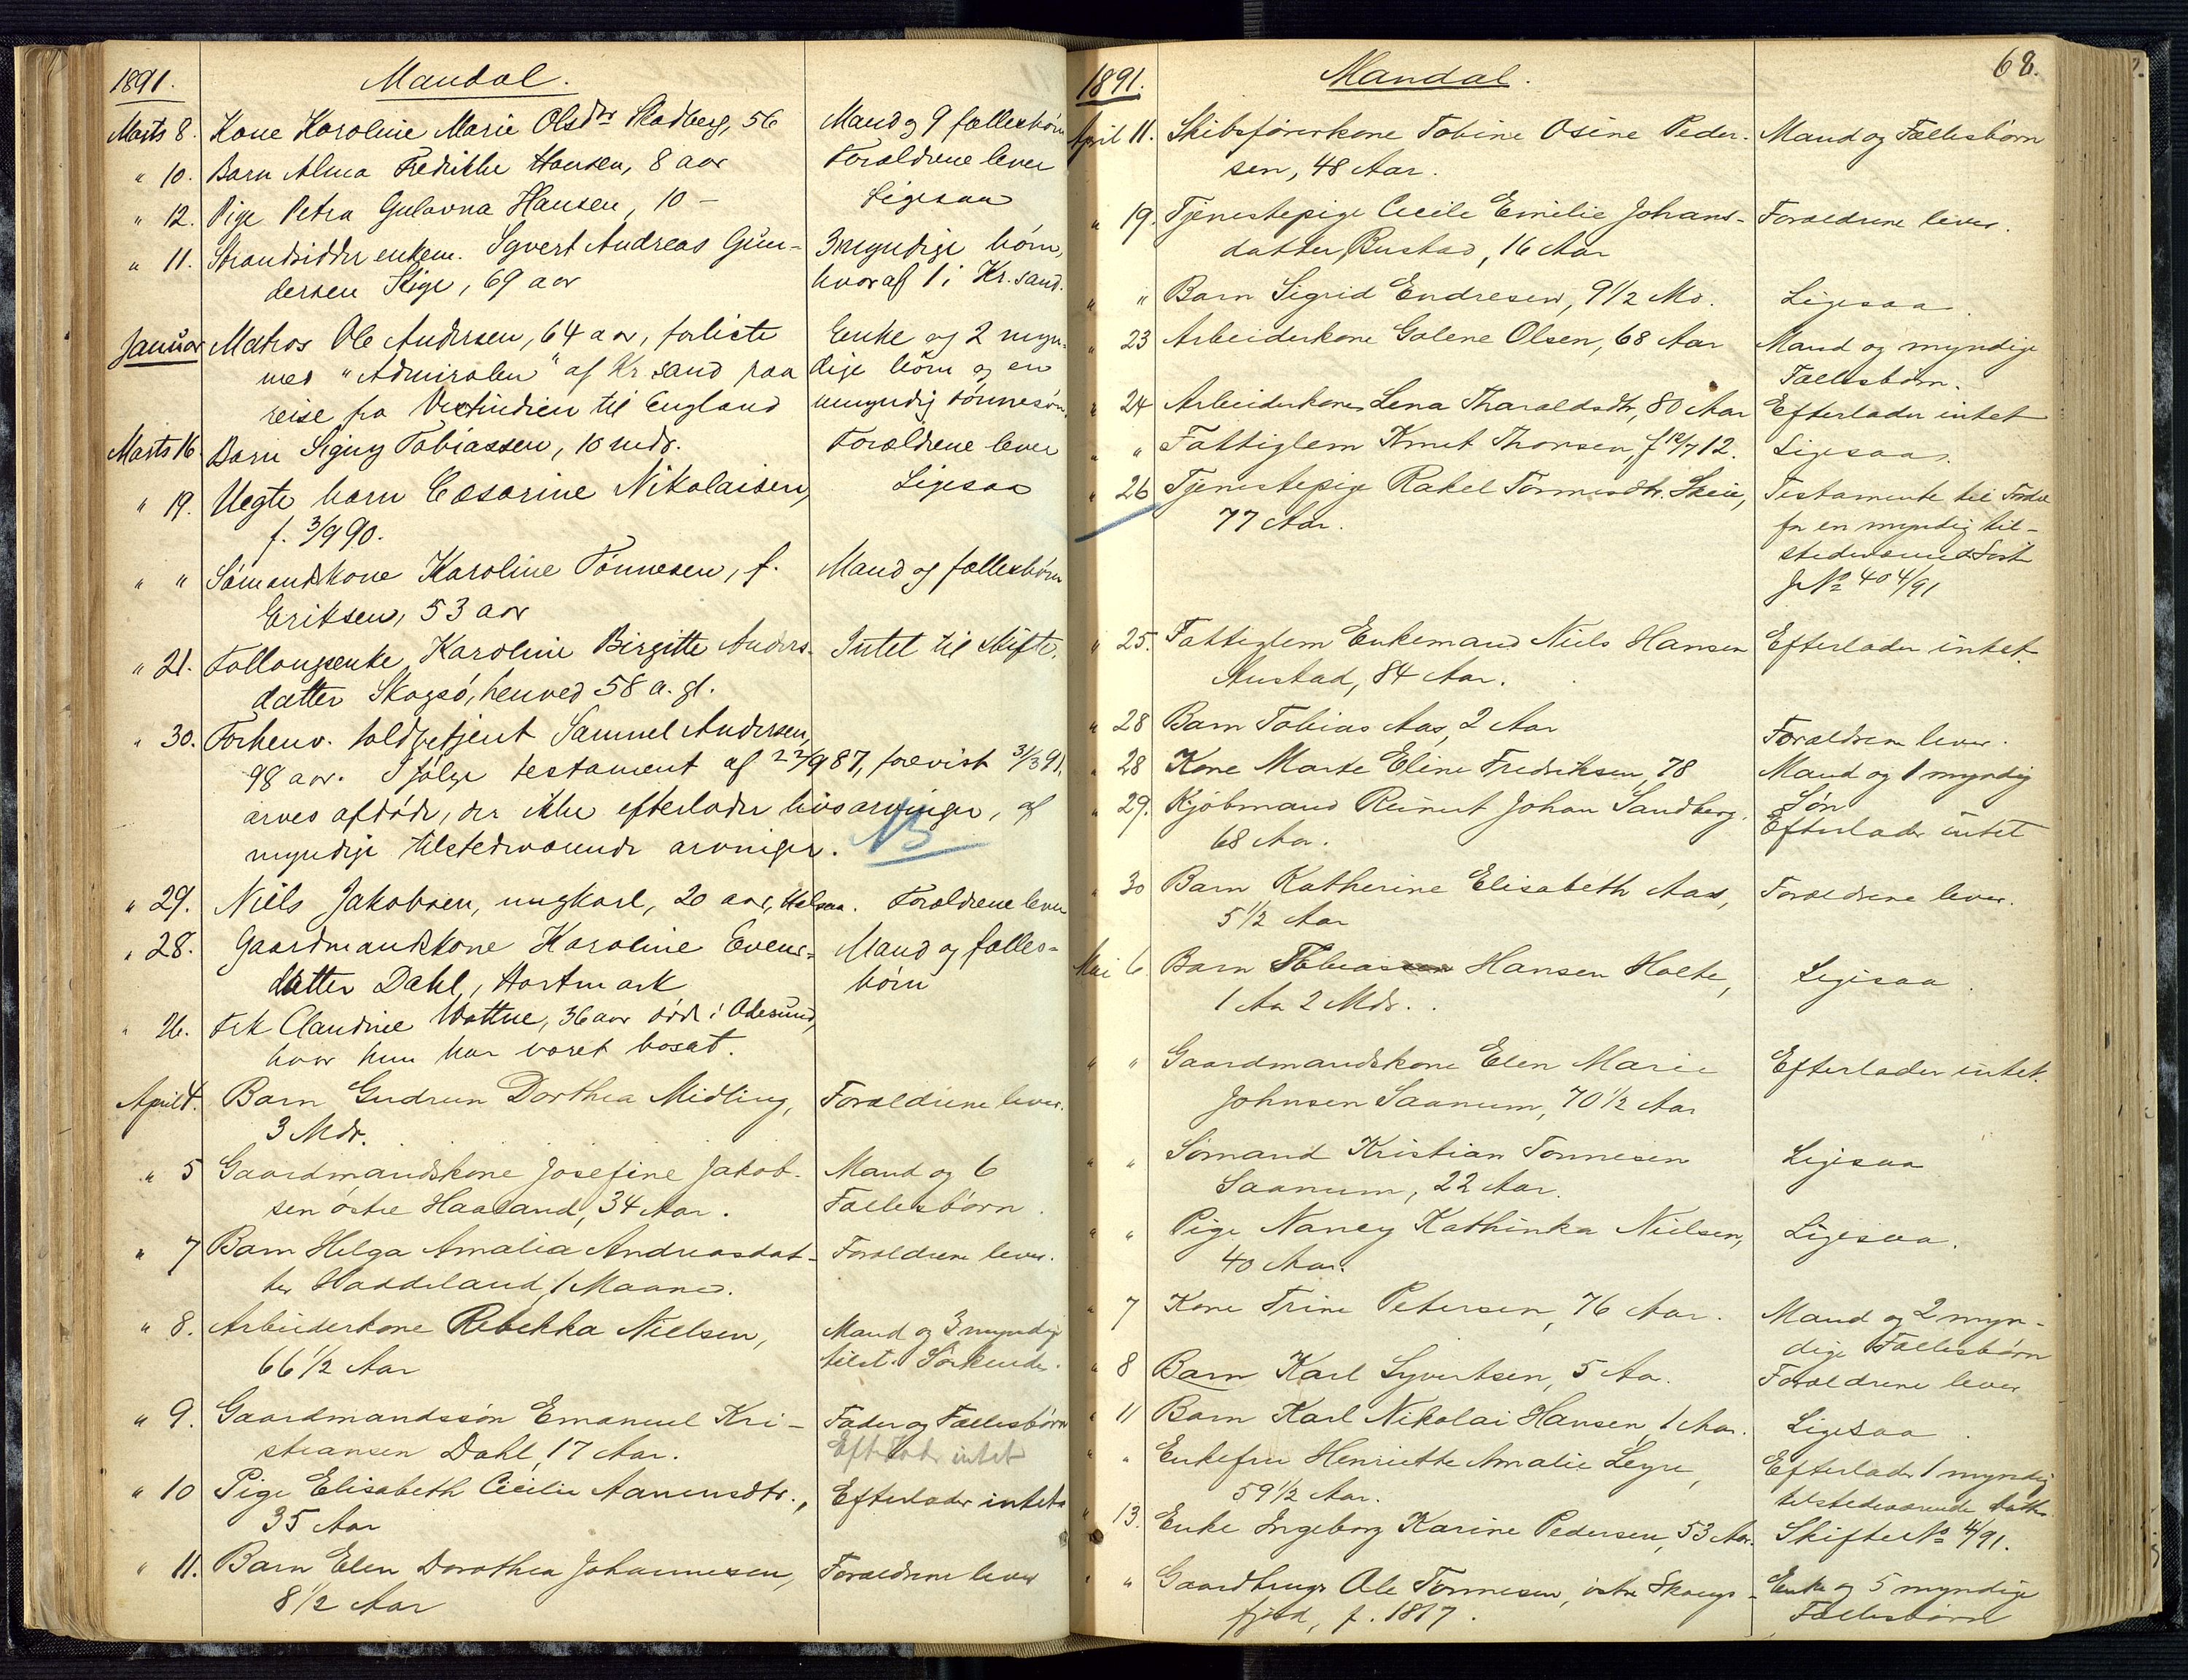 1891.
Mandal.
Marts 8. Kone Karoline Marie Olsdtr Skadberg, 56
Mand og 9 fællesbørn
" 10. Barn Alma Fredrikke Hansen, 8 aar
Forældrene lever
" 12. Pige Petra Gulovna Hansen, 10 –
Ligesaa
" 11. Strandsidder enkem. Syvert Andreas Gun-
3 myndige børn,
dersen Skige, 69 aar
hvoraf 1 i Kr.sand.
Januar Matros Ole Andersen, 64 aar, forliste
Enke og 2 myn-
med "Admiralen" af Kr sand paa
dige børn og en
reise fra Vestindien til England
umyndig sønnesøn.
Marts 16. Barn Signy Tobiassen, 10 mdr.
Forældrene lever
" 19. Uegte barn Cæsarine Nikolaisen,
Ligesaa
f. 3/9 90.
" " Sømandskone Karoline Tønnesen, f.
Mand og fællesbørn
Eriksen, 53 aar
" 21. Karoline Birgitte Anders-
Intet til skifte.
datter Skogsø, henved 58 a. gl.
" 30. Forhenv. toldbetjent Samuel Andersen,
98 aar. Ifølge testament af 22/9 87, forevist 31/3 91,
arves afdøde, der ikke efterlader livsarvinger, af
myndige tilstedeværende arvinger. NB
" 29. Niels Jakobsen, ungkarl, 20 aar, Halsaa. Forældrene lever
" 28. Gaardmandskone Karoline Evens-
Mand og fælles-
datter Dahl, Hartmark
børn
" 26. Frk Claudine Wattne, 36 aar død i Aalesund,
hvor hun har været bosat.
April 4. Barn Gudrun Dorthea Midling,
Forældrene lever.
3 Mdr.
" 5 Gaardmandskone Josefine Jakob-
Mand og 6
sen østre Haaland, 34 Aar.
Fællesbørn.
" 7 Barn Helga Amalia Andreasdat-
Forældrene lever.
ter Haddeland, 1 Maaned.
" 8. Arbeiderkone Rebekka Nielsen,
Mand og 3 myndige
66 1/2 Aar
tilst. Søskende.
" 9. Gaardmandssøn Emanuel Kri-
Fader og Fællesbørn
stiansen Dahl, 17 Aar.
Efterlader intet
" 10 Pige Elisabeth Cicilie Aanensdtr.,
Efterlader intet
35 Aar
" 11. Barn Elen Dorothea Johannesen,
Forældrene lever
8 1/2 Aar
1891.
Mandal.
68.
April 11. Skibsførerkone Tobine Osine Peder-
Mand og Fællesbørn
sen, 48 Aar.
" 19. Tjenestepige Cecile Emilie Johans-
Forældrene lever.
datter Rustad, 16 Aar
" " Barn Sigrid Endresen, 9 1/2 Md.
Ligesaa.
" 23 Arbeiderkone Golene Olsen, 68 Aar
Mand og myndige
Fællesbørn.
" 24 Arbeiderkone Lena Tharaldsdtr, 80 Aar
Efterlader intet
" " Fattiglem Knut Thorsen, f 12/7 12.
Ligesaa.
" 26 Tjenestepige Rakel Tørresdtr. Skeie,
Testamente til Fordel
77 Aar.
for en myndig til-
stedeværende
J No 404/91
" 25. Fattiglem Enkemand Niels Hansen
Efterlader intet.
Austad, 84 Aar.
" 28 Barn Tobias Aas, 2 Aar
Forældrene lever.
" 28 Kone Marte Eline Fredriksen, 78
Mand og 1 myndig
Søn
" 29. Kjøbmand Reinert Johan Sandberg,
Efterlader intet
68 Aar.
" 30 Barn Katherine Elisabeth Aas,
Forældrene lever.
5 1/2 Aar
Mai 6 Barn Tobias Hansen Holte,
Ligesaa.
1 Aar 2 Mdr.
" " Gaardmandskone Elen Marie
Efterlader intet.
Johnsen Saanum, 70 1/2 Aar
" " Sømand Kristian Tønnesen
Ligesaa
Saanum, 22 Aar.
" " Pige Nancy Kathinka Nielsen,
Ligesaa.
40 Aar.
" 7 Kone Trine Petersen, 76 Aar.
Mand og 2 myn-
dige Fællesbørn
" 8 Barn Karl Syvertsen, 5 Aar.
Forældrene lever
" 11 Barn Karl Nikolai Hansen, 1 Aar.
Ligesaa.
" " Enkefru Henriette Amalie Leyre,
Efterlader 1 myndig
59 1/2 Aar.
tilstedeværende Datter
" 13. Enke Ingeborg Karine Pedersen, 53 Aar.
Skifte No 4/91.
" " Gaardbruger Ole Tønnesen, østre Skogs-
Enke og 5 myndige
fjord, f. 1817.
Fællesbørn